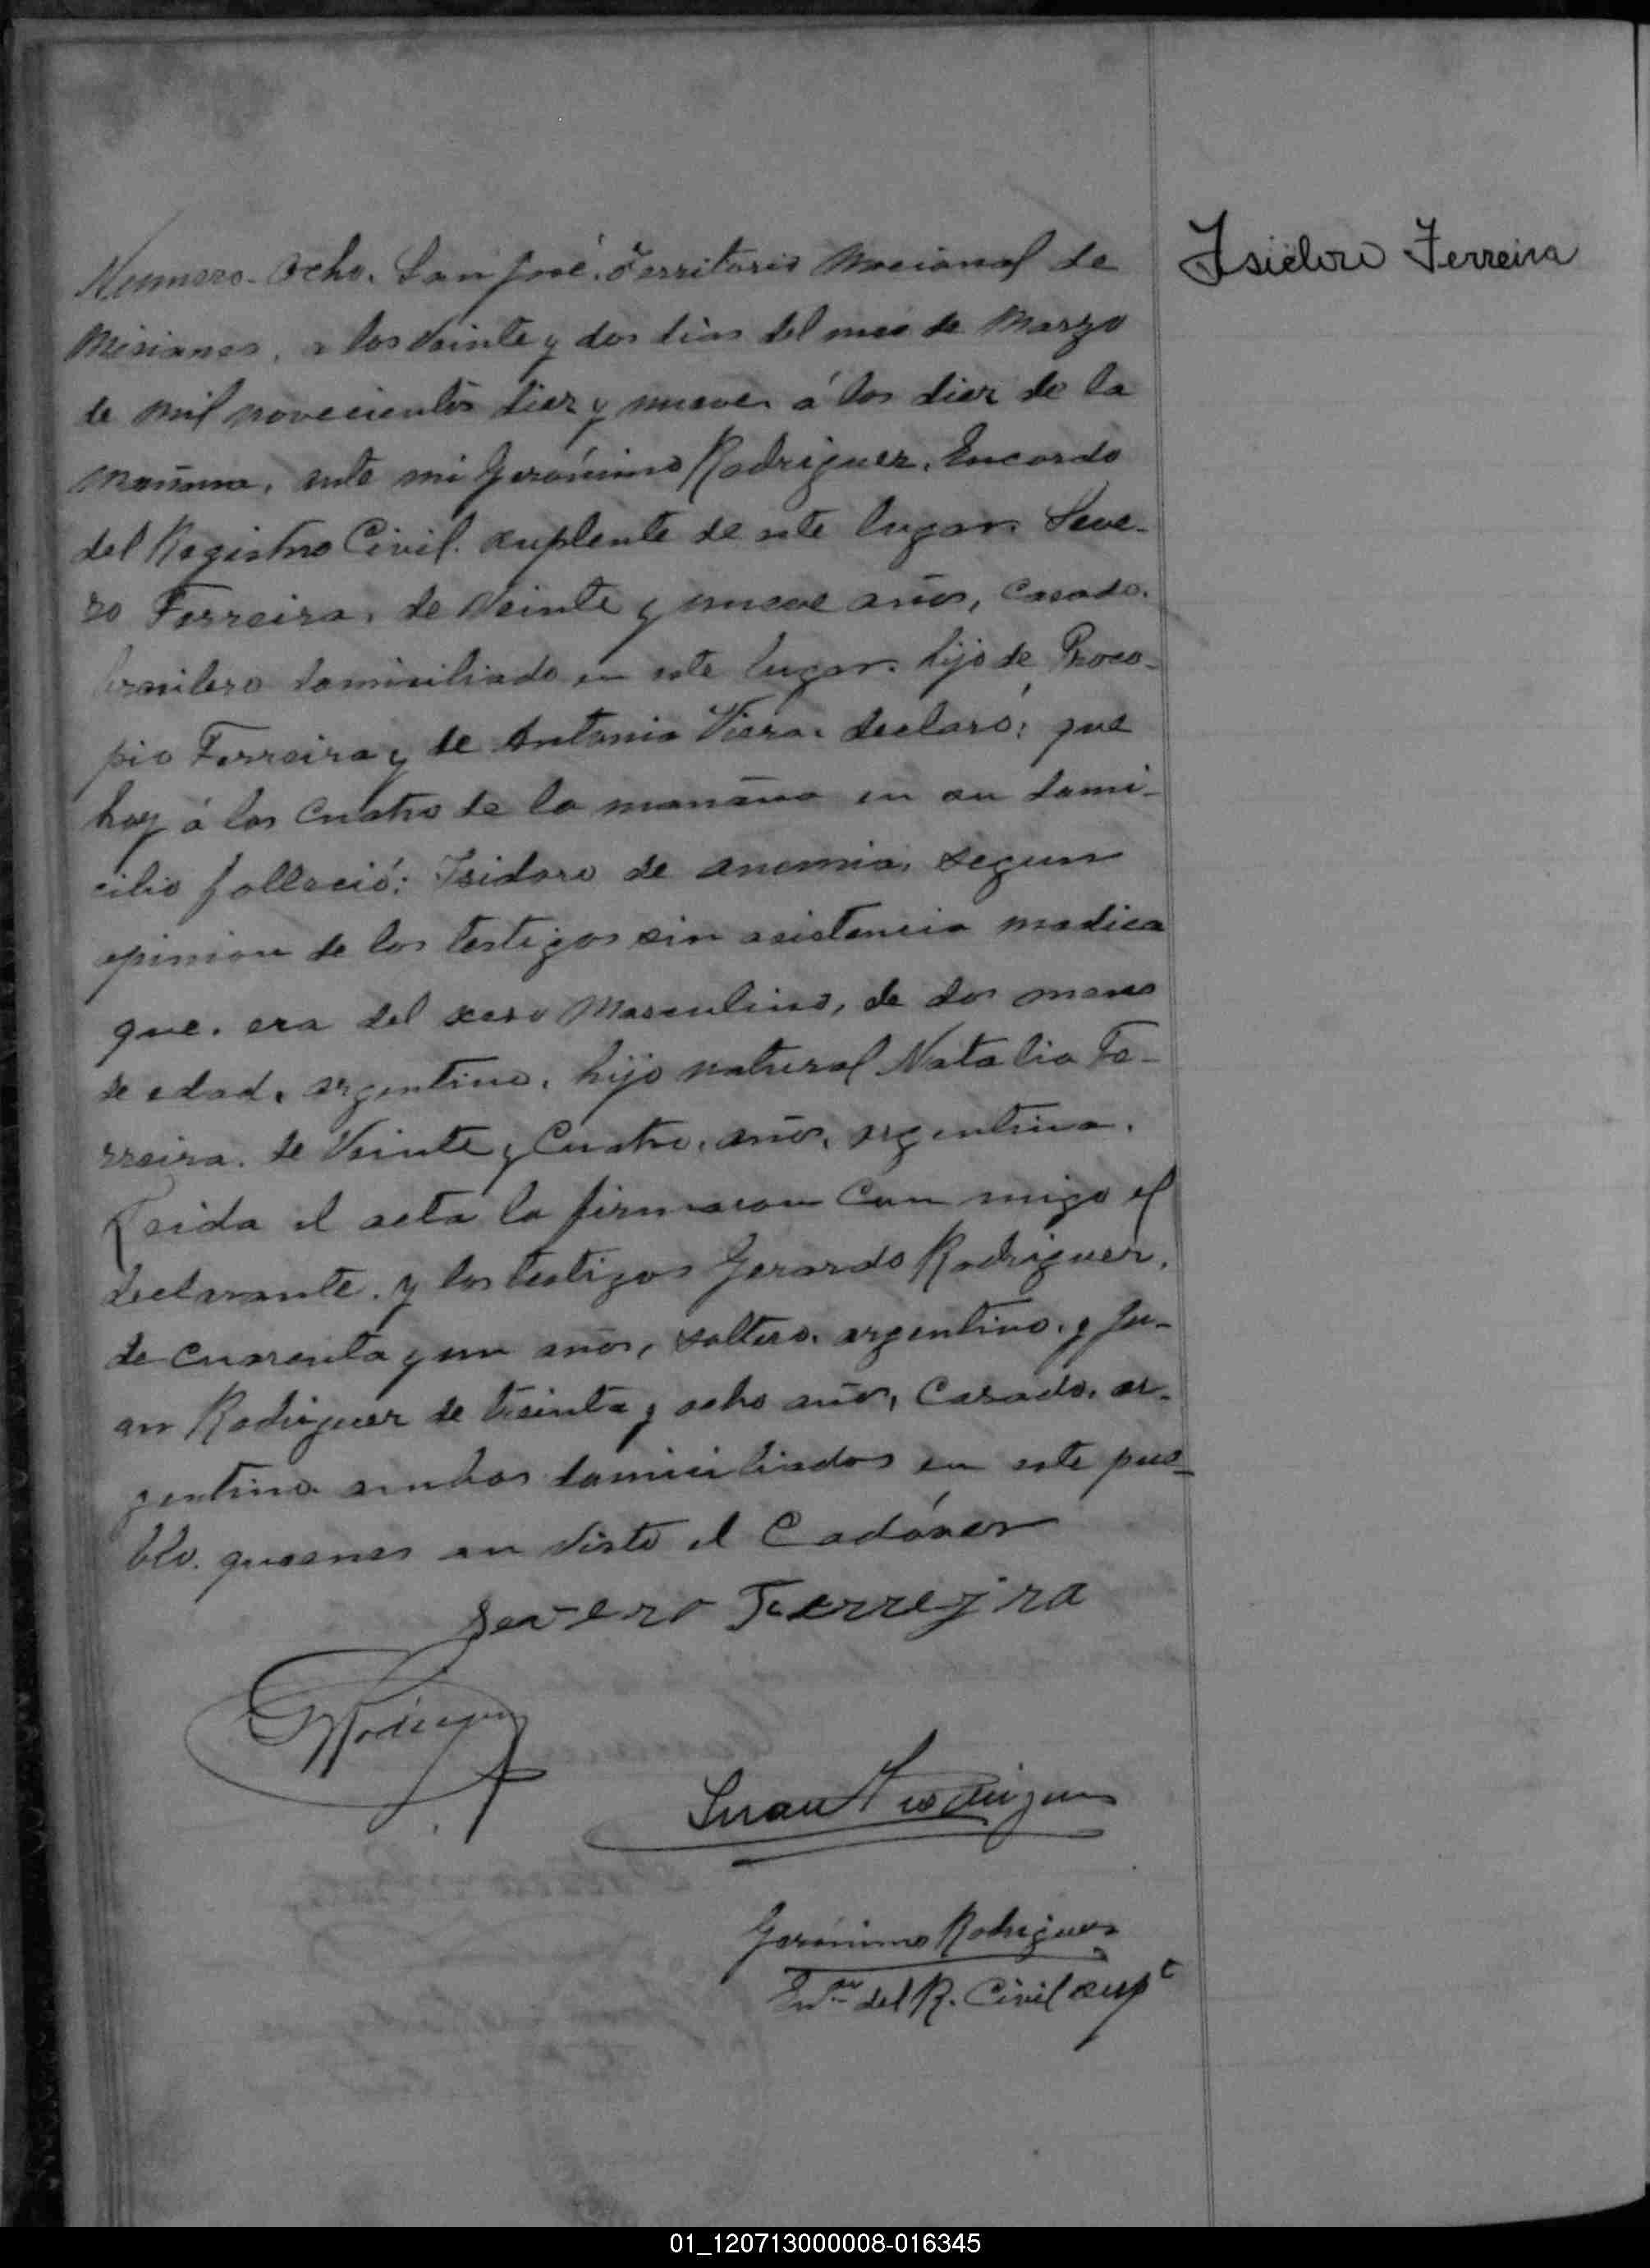 Isidoro Ferreira
Numero Ocho. San José. Territorio Nacional de
Misiones, a los veinte y dos dias del mes de Marzo
de mil novecientos diez y nueve. á los diez de la
mañana, ante mi Gerónimo Rodriguez. Encardo
del Registro Civil. suplente de este lugar. Seve-
ro Ferreira, de veinte y nueve años, casado.
brasilero domiciliado en este lugar. hijo de Proco-
pio Ferreira y de Antonia Viera. declaró: que
hoy á las cuatro de la mañana en su domi-
cilio falleció: Isidoro de anemia, segun
opinion de los testigos sin asistencia medica
que. era del sexo Masculino, de dos meses
de edad, argentino, hijo natural Natalia Fe-
rreira. de Veinte y Cuatro, años, argentina.
Leida el acta la firmaron con migo el
declarante. y los testigos Gerardo Rodriguez,
de cuarenta y un años, soltero. argentino. y Ju-
an Rodriguez de treinta y ocho años, Casado, ar-
gentino ambos domiciliados en este pue-
blo. quienes an visto el Cadáver
Severo Ferrejra
GRodriguez
Juan Rodriguez
Gerónimo Rodriguez
del R. Civil supte
01_120713000008-016345